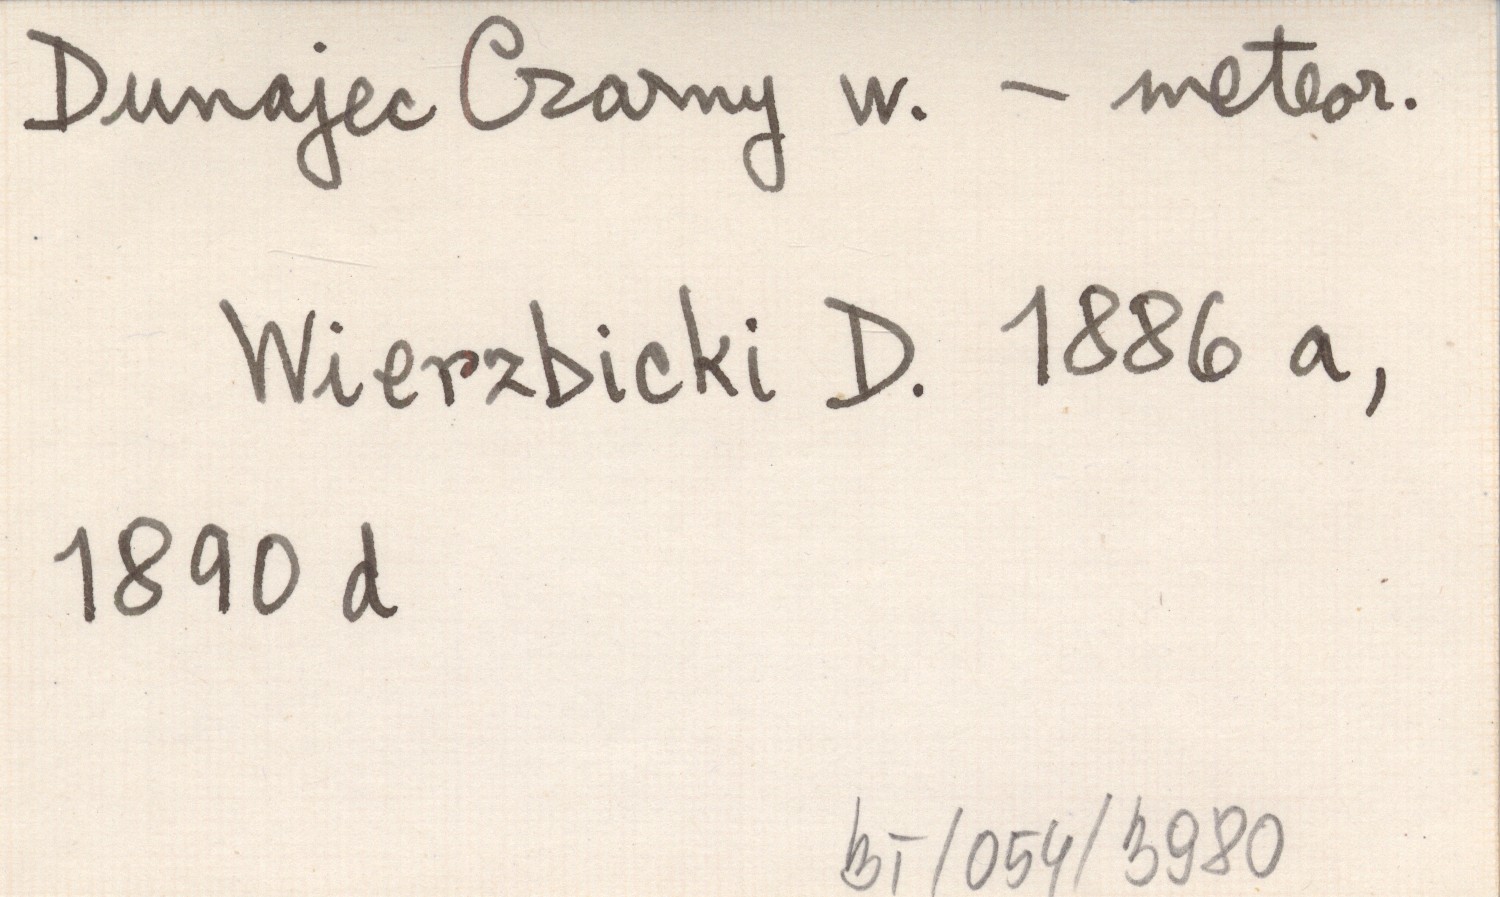 Dunajec Czarny w. - meteor.
Wierzbicki D. 1886 a,
1890 d
BT/054/3980